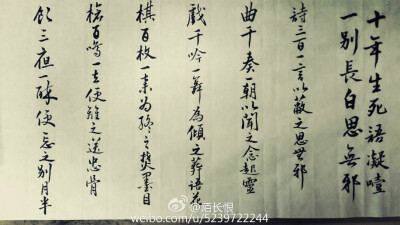 十年生死語凝噎
一别長白思無邪
詩三百一言以蔽之思無邪
曲千奏一朝以聞之念起靈
戲千吟一舞為傾之葬語花
棋百枚一素為終之焚墨目
一立便雖之送忠骨
三一酥便忘之别月半
@陌长恨
weibo.com/u/5239722244